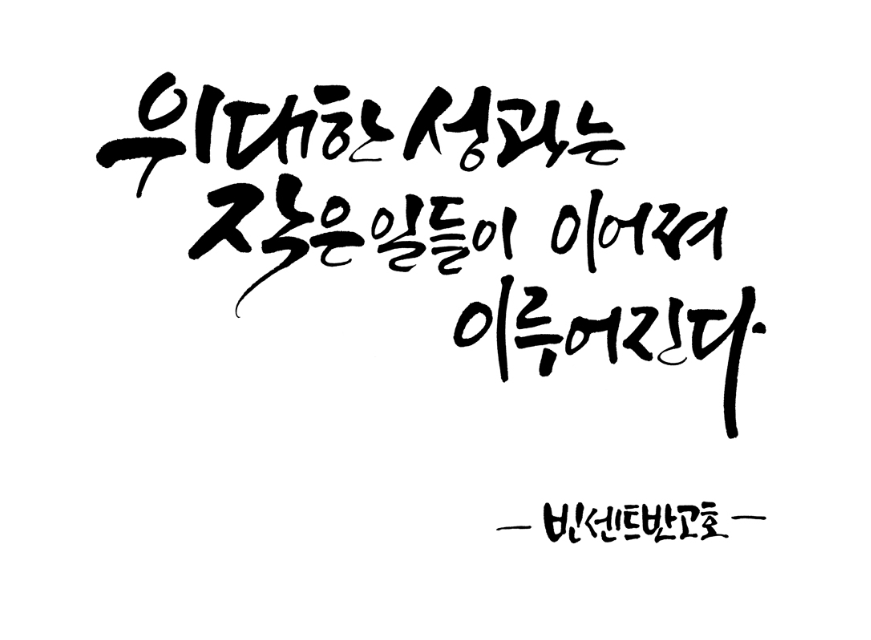 위대한 성과는
작은 일들이 이어져
이루어진다.
- 빈센트반고호 -